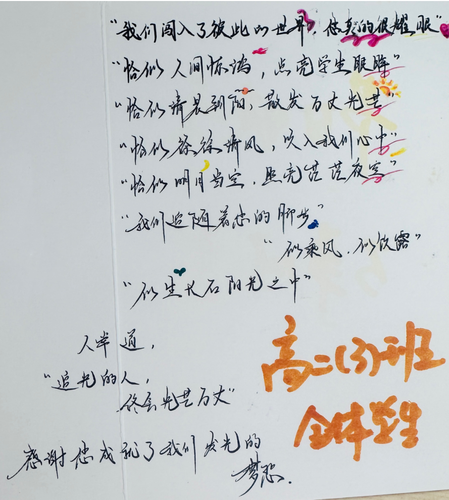 “我们闯入了彼此的世界，您真的很耀眼”
“恰似人间惊鸿，点亮学生眼眸”
“恰似清晨朝阳，散发万丈光芒”
“恰似徐徐清风，吹入我们心中”
“恰似明月当空，照亮茫茫夜空”
“我们追随着您的脚步”
“似乘风，似饮露”
“似生长在阳光之中”
人半道，
“追光的人，
终会光芒万丈”
感谢您成就了我们发光的
梦想.
高二(3)班
全体学生